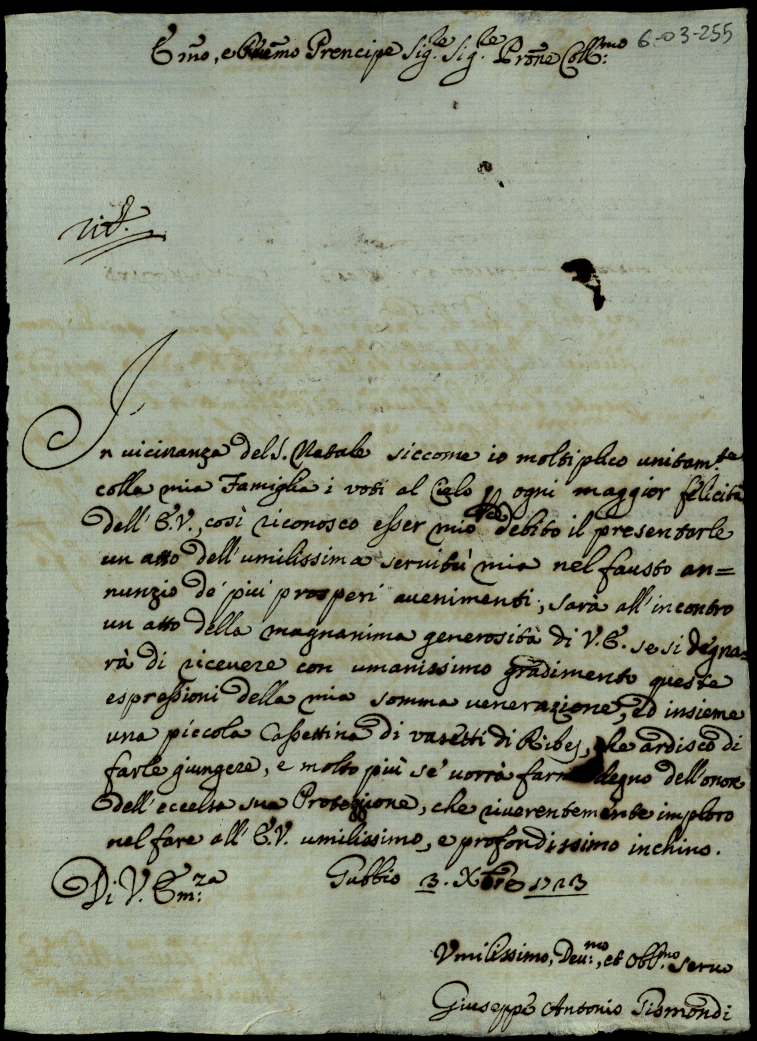 6-03-255
Em̃o, e Reṽemo Prencipe Sig.re Sig.re Prõne Coll.mo
In vicinanza del S. Natale siccome io moltiplico unitam.te
colla mia Famiglia i voti al Cielo p ogni maggior felicità
dell' E.V., così riconosco esser mio debito il presentarle
un atto dell' umilissima servitù mia nel fausto an=
nunzio de' più prosperi avenimenti; sarà all' incontro
un atto della magnanima generosità di V.E. se si degna=
rà di ricevere con umanissimo gradimento queste
espressioni della mia somma venerazione, ed insieme
una piccola Cassettina di vasetti di Ribes, che ardisco di
farle giungere, e molto più se vorrà farmi degno dell' onore
dell' eccelsa sua Protezzione, che riverentemente imploro
nel fare all' E.V. umilissimo, e profondissimo inchino.
Di V. Em.za Gubbio 3. Xbre 1723
Vmilissimo, Deu.mo, et Obb.mo Seruo
Giuseppe Antonio Pismondi